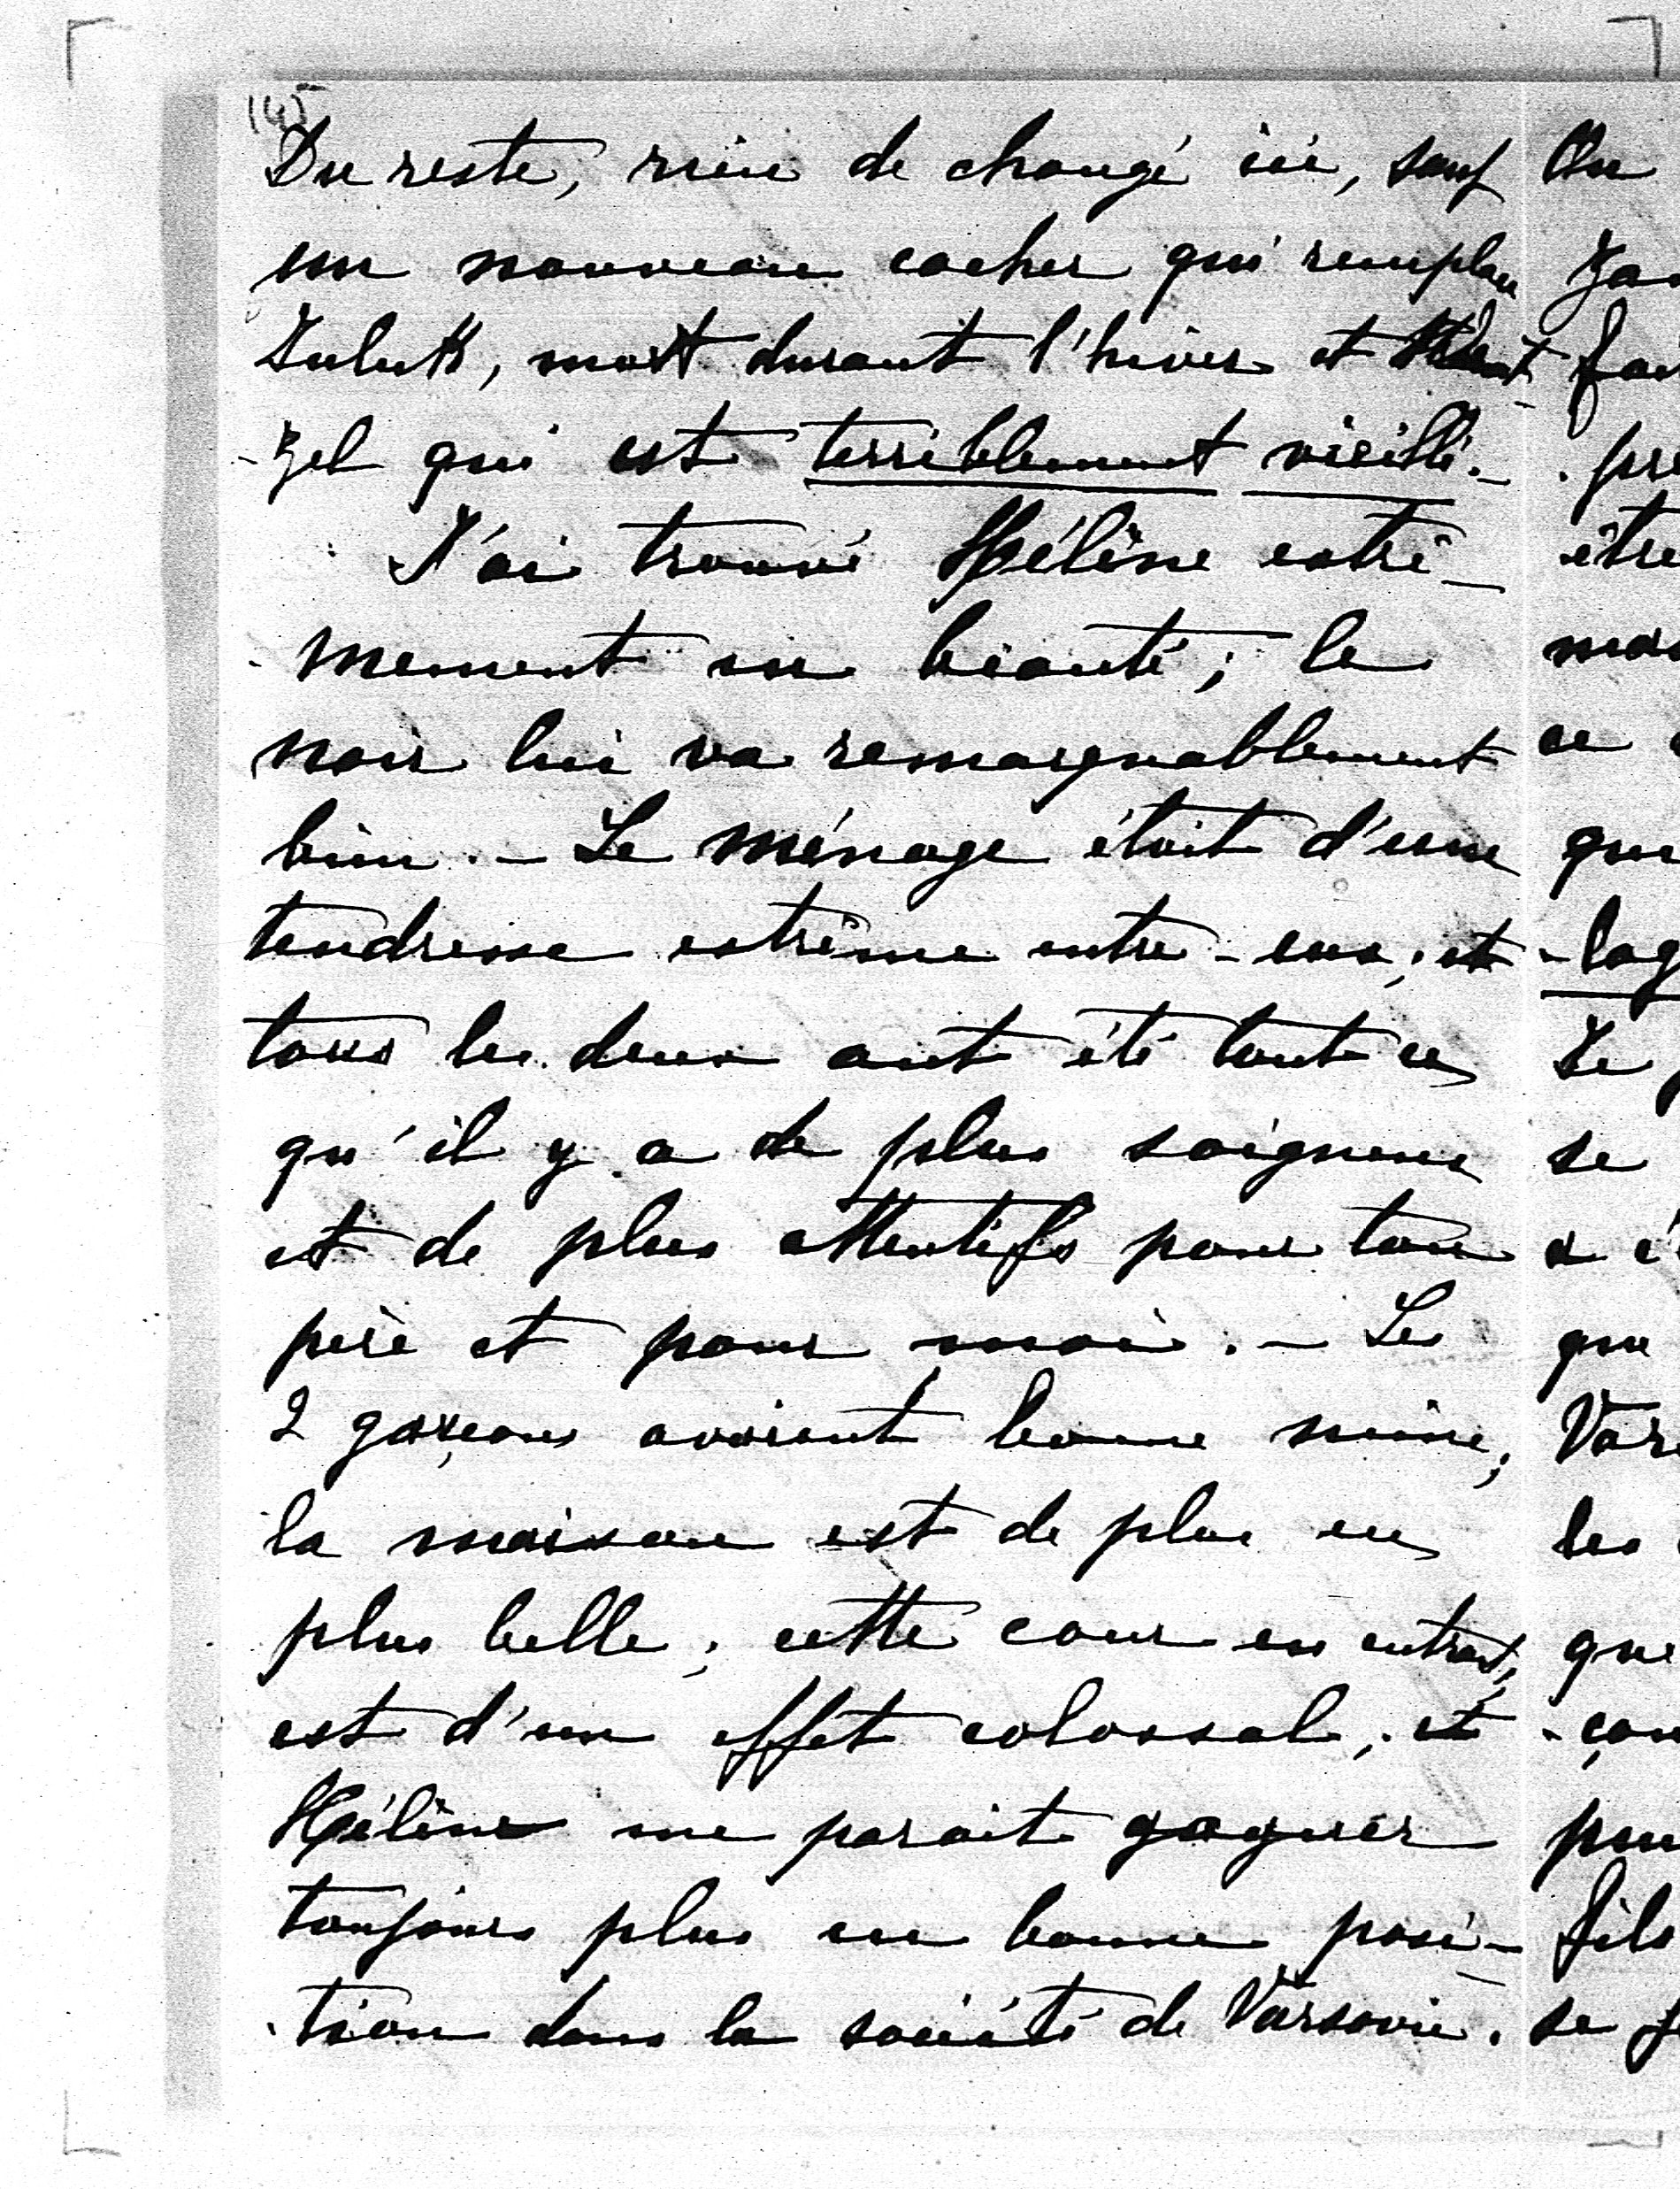 145
Du reste, rien de changé ici, sauf
un nouveau cocher qui remplace
Juluk, mort durant l'hiver et
-zel qui est terriblement vieilli. -
J'ai trouvé Hélène extrê-
mement en beauté; le
noir lui va remarquablement
bien. - Le ménage était d'une
tendresse extrême entre-eux; et
tous les deux ont été tout ce
qu'il y a de plus soigneux
et de plus attentifs pour ton
père et pour moi. - Les
2 garçons avaient bonne mine;
la maison est de plus en
plus belle; cette cour en entrant,
est d'un effet colossal; et
Hélène me parait gagner
toujours plus en bonne posi-
tion dans la société de Varsovie.
On
fai
pre
être
mai
ce
que
-log
Je
se
a é
que
Vars
les
que
-çon
pou
fils
se